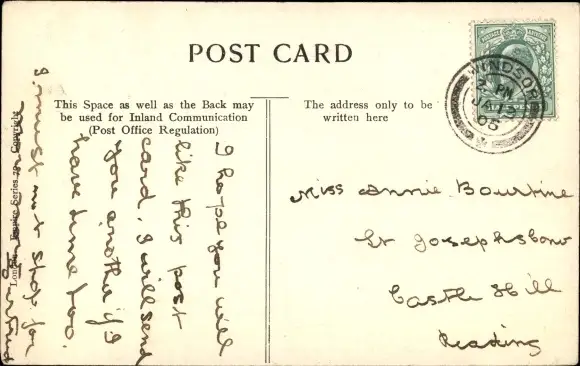 POST CARD
This Space as well as the Back may
be used for Inland Communication
(Post Office Regulation)
The address only to be
written here
WINDSOR
PM
JA 13
05
POSTAGE
REVENUE
London
Empire Series
Copyright
I hope you will
like this post
card, I will send
you another if I
have time too.
I must not stop for
Miss Annie Bourtine
St Josephs
Castle Hill
Reading